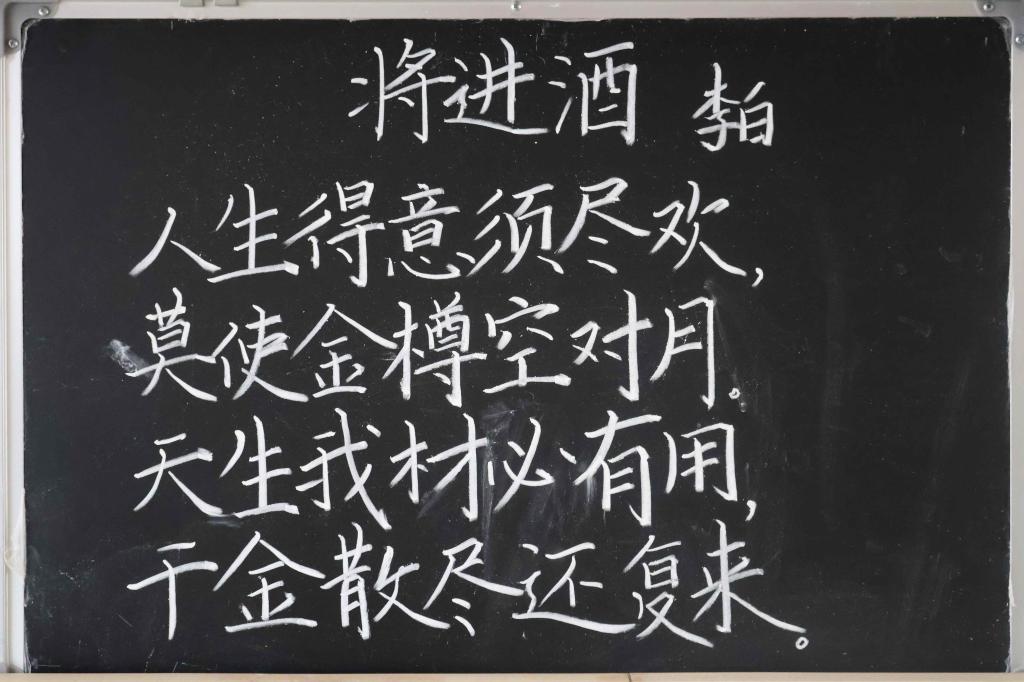 将进酒 李白
人生得意须尽欢，
莫使金樽空对月。
天生我材必有用，
千金散尽还复来。